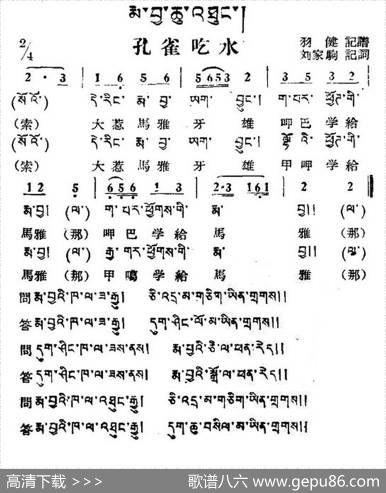 རྨ་བྱ་ཆུ་འཐུང་།
2/4
孔雀吃水
羽健記譜
刘家駒記詞
2 · 3 1 6 5 6 5 6 5 3 2 2 3 5 3 5
(སོ་འོ་) དེ་རིང་ རྨ་ བྱ་ ཨག་ བྱུང་། ག་ པར་ ཕྱོག་ གི་
(索) 大惹 馬雅 牙 雄 呷巴 学給
(索) 大惹 馬雅 牙 雄 甲呷 学給
1 2 5 · 6 5 6 1 3 2 · 3 1 6 1 2 2
རྨ་བྱ། (ལ་) ག་ པར་ ཕྱོགས་གི་ རྨ་ བྱ།། (ལ་)
馬雅 (那) 呷巴 学給 馬 雅 (那)
馬雅 (那) 甲噶 学給 馬 雅 (那)
問 རྨ་བྱའི་ཁ་ལ་ཟ་རྒྱུ། ཅི་འདྲ་མ་གཅིག་ཡིན་གྲགས།།
答 རྨ་བྱའི་ཁ་ལ་ཟ་རྒྱུ། དུག་ཤིང་ལོ་མ་ཡིན་གྲགས།།
問 དུག་ཤིང་ཁ་ལ་ཟས་ནས། རྨ་བྱའི་ཅི་ལ་ཕན་རེད།།
答 དུག་ཤིང་ཁ་ལ་ཟས་ནས། རྨ་བྱའི་སྒྲོ་ལ་ཕན་རེད།།
問 རྨ་བྱའི་ཁ་ལ་འཐུང་རྒྱུ། ཅི་འདྲ་མ་གཅིག་ཡིན་གྲགས།།
答 རྨ་བྱའི་ཁ་ལ་འཐུང་རྒྱུ། དུག་ཆུ་བསིལ་མ་ཡིན་གྲགས།།
高清下载 >>> 歌谱八六 www.gepu86.com